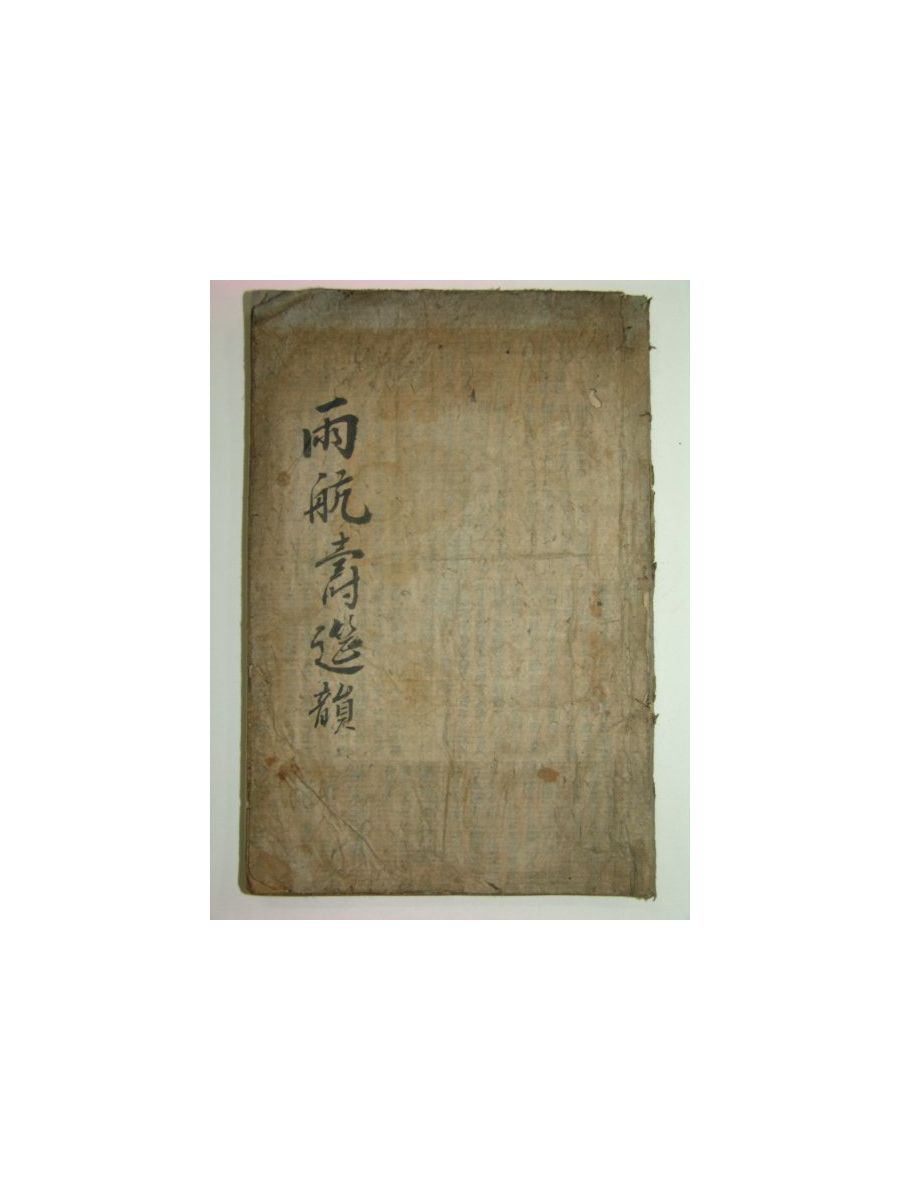 雨航壽筵韻